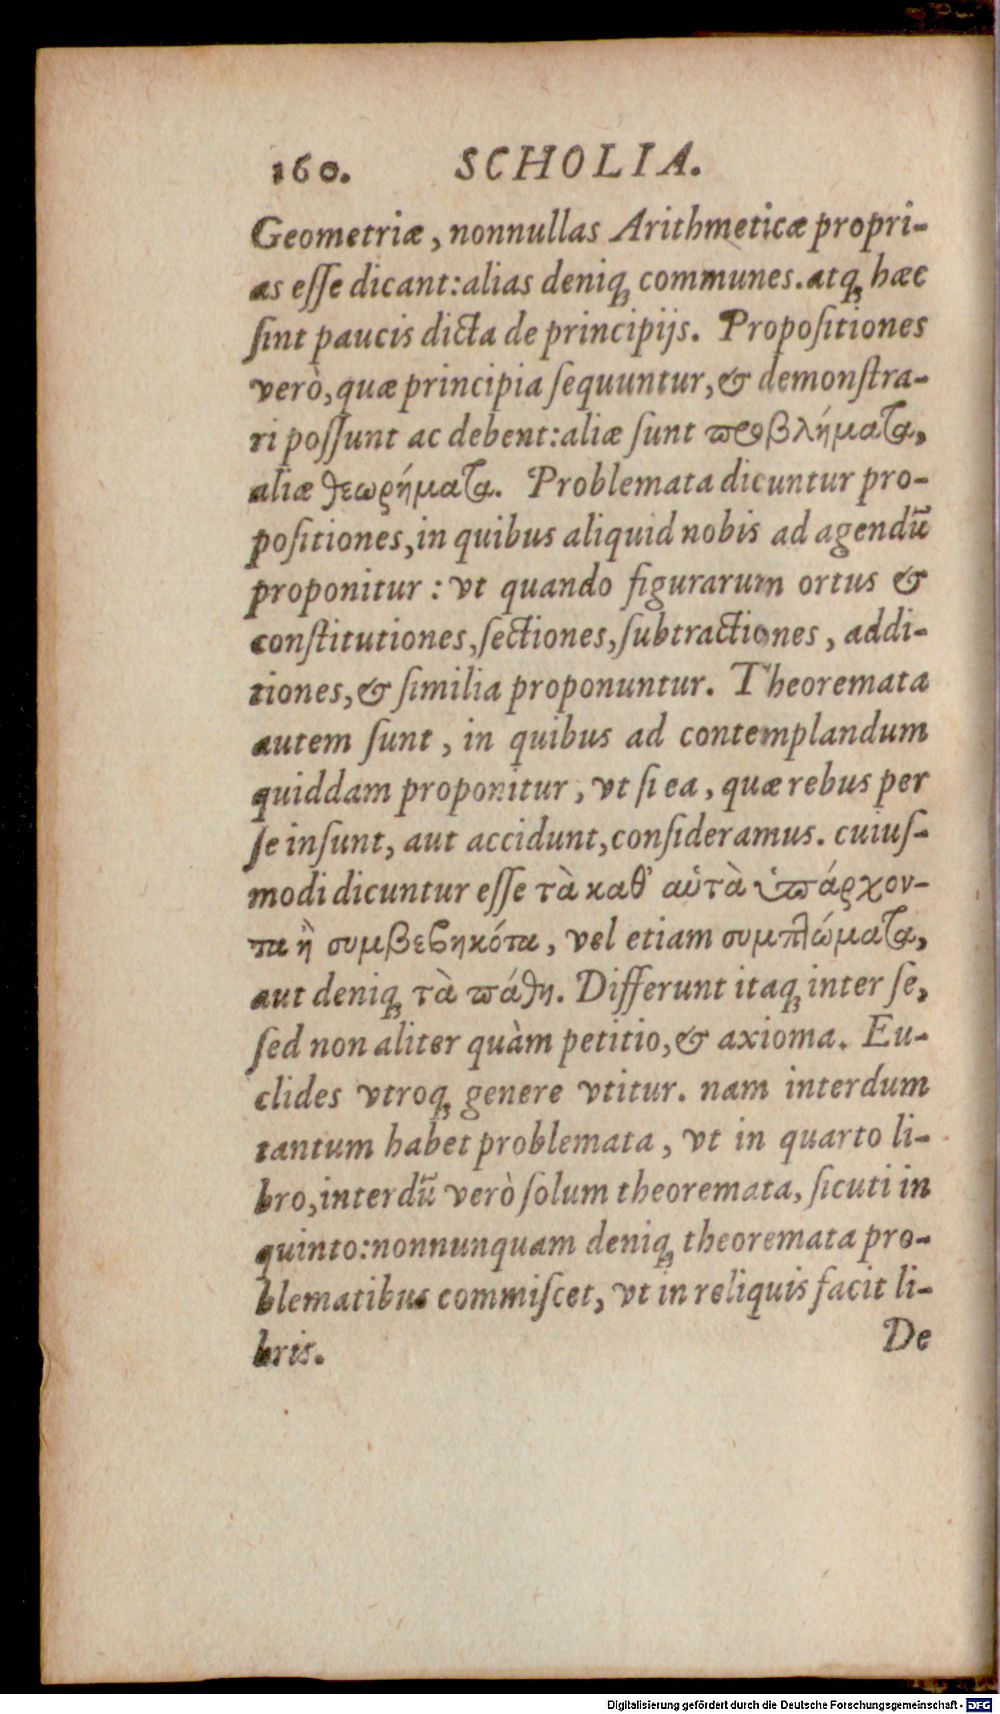 160. SCHOLIA.
Geometriæ, nonnullas Arithmeticæ propri-
as eſſe dicant: alias deniqꝫ communes. atqꝫ hæc
ſint paucis dicta de principijs. Propoſitiones
verò, quæ principia ſequuntur, & demonſtra-
ri poſſunt ac debent: aliæ ſunt προβλήματα,
aliæ θεωρήματα. Problemata dicuntur pro-
poſitiones, in quibus aliquid nobis ad agendū
proponitur : vt quando figurarum ortus &
conſtitutiones, ſectiones, ſubtractiones, addi-
tiones, & ſimilia proponuntur. Theoremata
autem ſunt, in quibus ad contemplandum
quiddam proponitur, vt ſi ea, quæ rebus per
ſe inſunt, aut accidunt, conſideramus. cuiuſ-
modi dicuntur eſſe τὰ καθ' αὑτὰ ὑπάρχον-
τα ἢ συμβεβηκότα, vel etiam συμπτώματα,
aut deniqꝫ τὰ πάθη. Differunt itaqꝫ inter ſe,
ſed non aliter quàm petitio, & axioma. Eu-
clides vtroqꝫ genere vtitur. nam interdum
tantum habet problemata, vt in quarto li-
bro, interdū verò ſolum theoremata, ſicuti in
quinto: nonnunquam deniqꝫ theoremata pro-
blematibus commiſcet, vt in reliquis facit li-
bris.
De
Digitalisierung gefördert durch die Deutsche Forschungsgemeinschaft - DFG